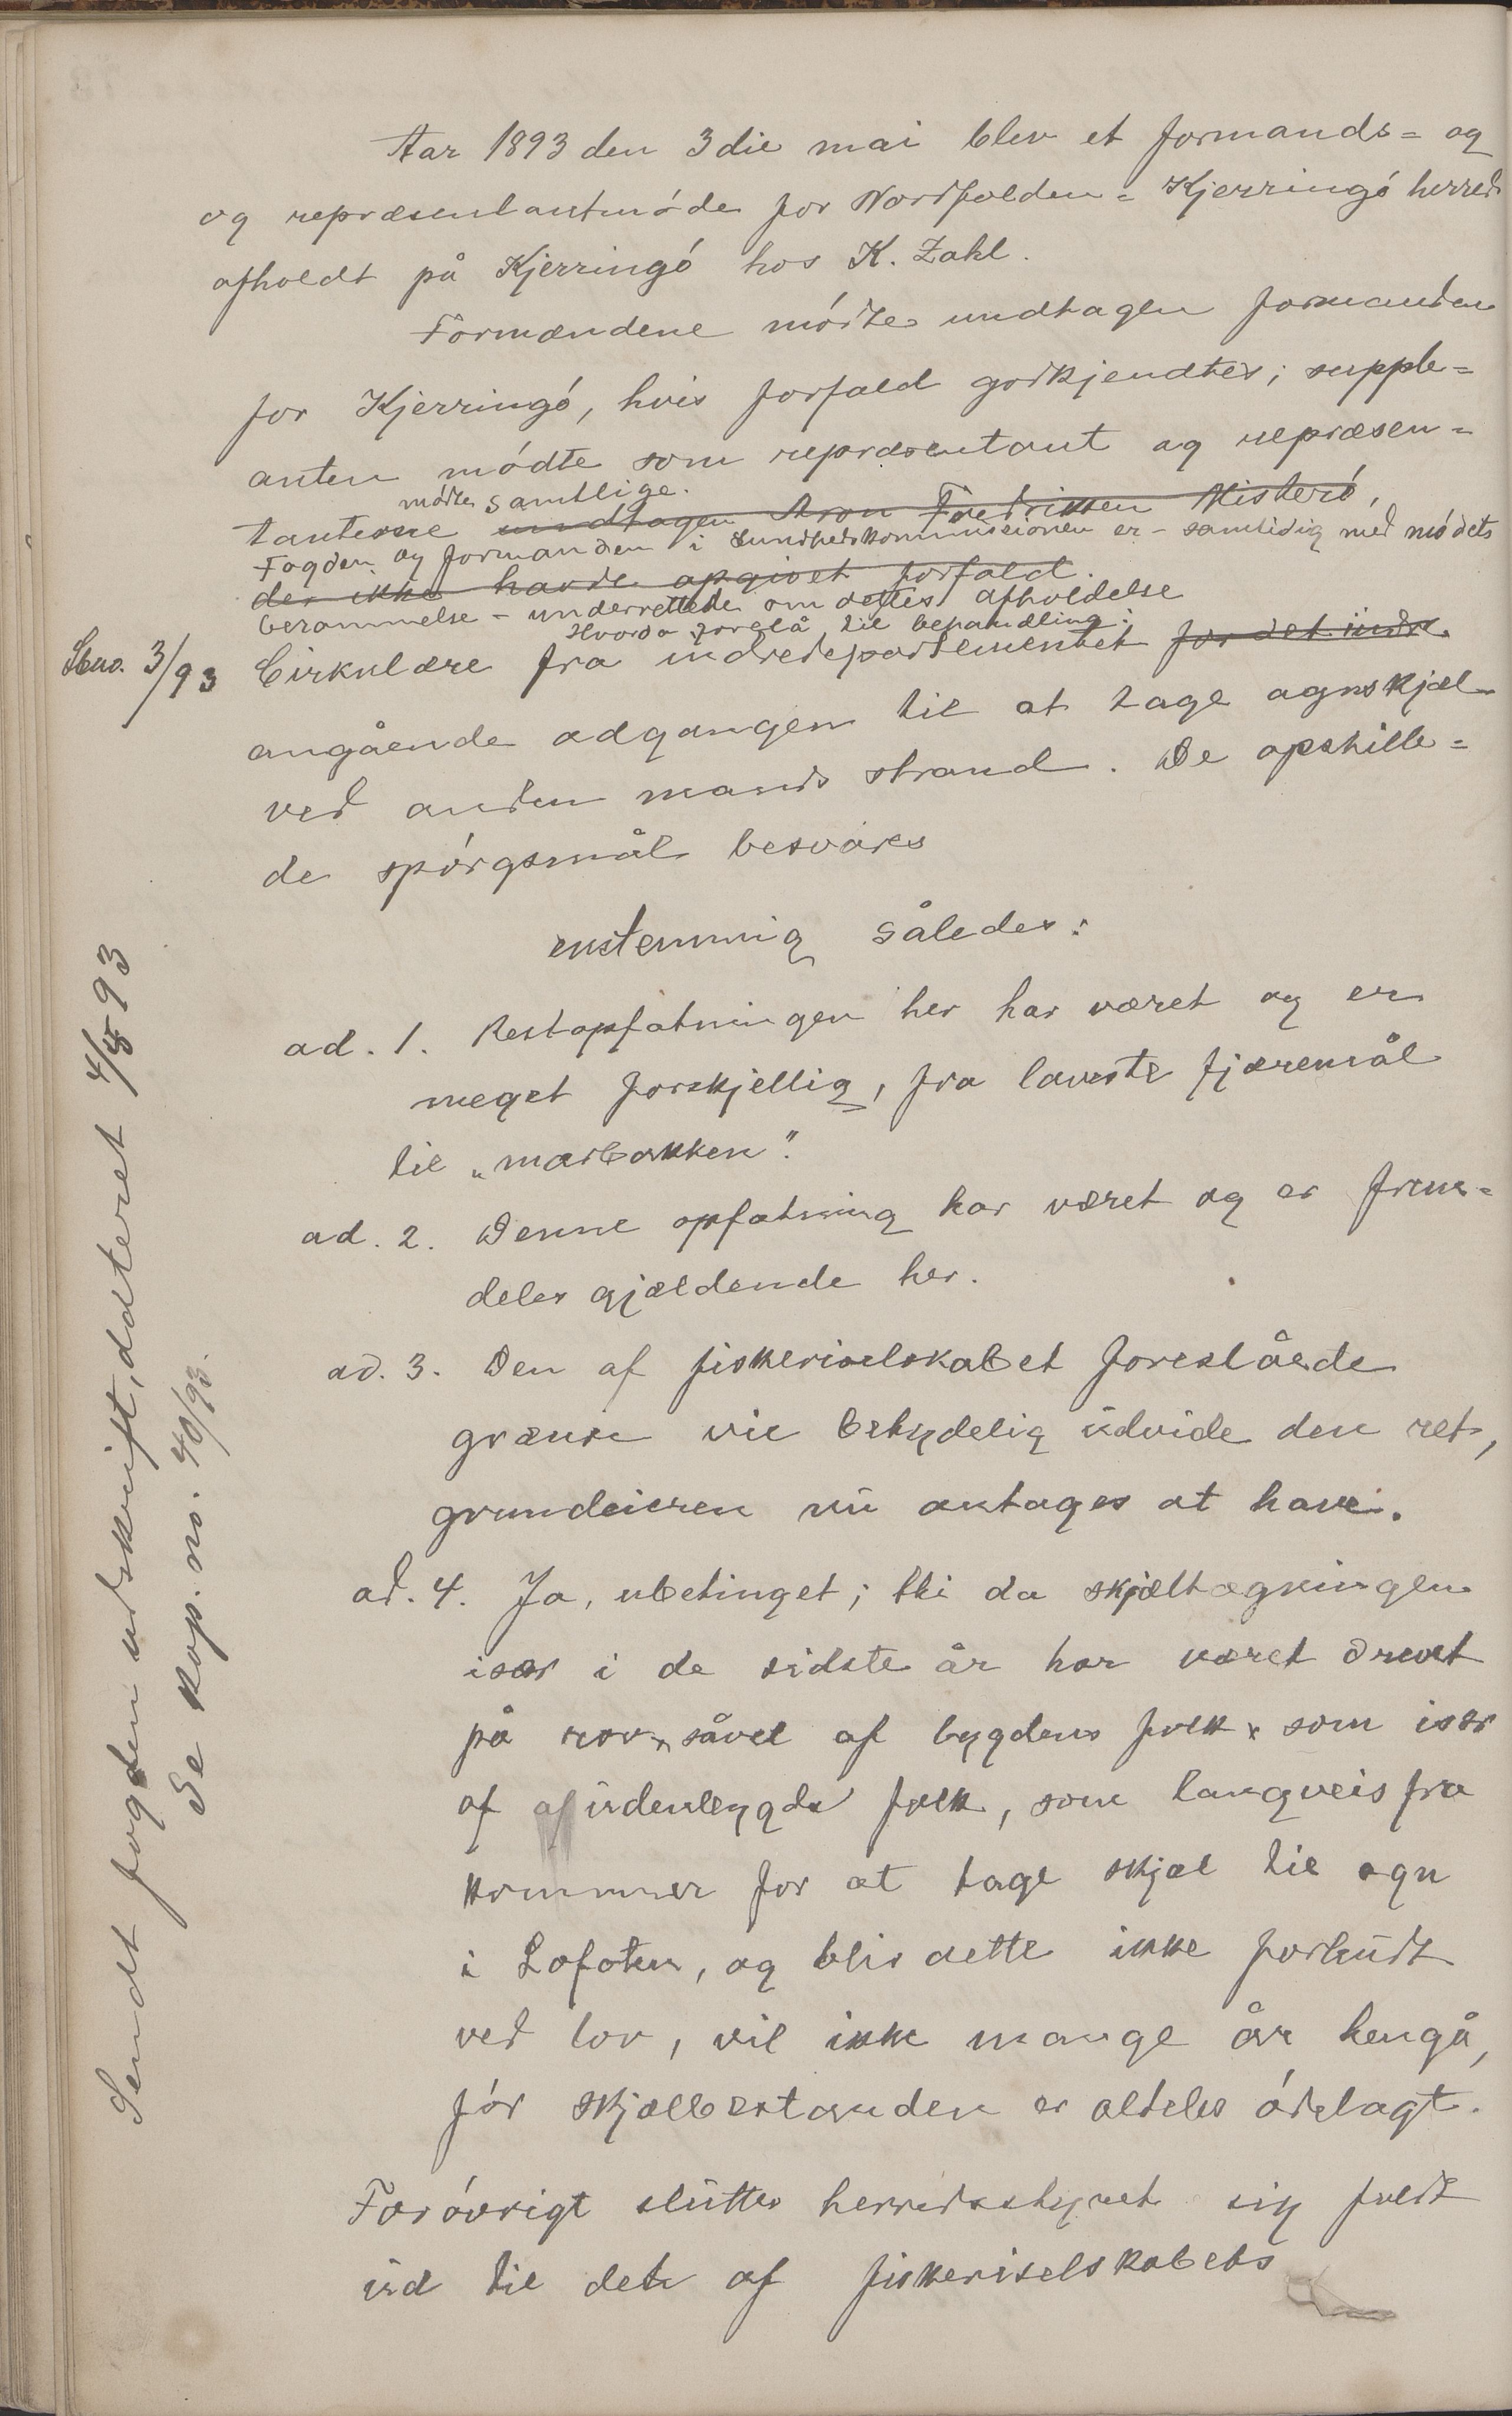 Aar 1893 den 3die mai blev et formands= og
og repræsentantmóde for Nordfolden=Kjerringó herred
afholdt på Kjerringó hos K. Zahl.
Formændene módte undtagen formanden
for Kjerringó, hvis forfald godkjendtes; supple=
anten módte som repræsentant og repræsen=
módte samtlige.
tanterne undtagen Aron Fredriksen Misteró,
Fogden og formanden i Sundhedskommissionen er - samtidig med módets
der ikke havde opgivet forfald.
berammelse - underrettede om dettes afholdelse
Hvorda forelå til behandling:
Sno. 3/93 Cirkulære fra indredepartementet for det indre
angående adgangen til at tage agnskjæl
ved anden mands strand. De opstille=
de spórgsmål besvares
enstemmig således:
ad. 1. Retsopfatningen her har været og er
meget forskjellig, fra laveste fjæremål
til „marbakken".
ad. 2. Denne opfatning har været og er frem=
deles gjældende her.
ad. 3. Den af fiskeriselskabet foreslåede
grænse vil betydelig udvide den ret,
grundeieren nu antages at have.
ad. 4. Ja, ubetinget; thi da skjæltagningen
især i de sidste år har været drevet
på rov, såvel af bygdens folk, som især
af af udenbygds folk, som langveis fra
kommer for at tage skjæl til agn
i Lofoten, og blir dette ikke forbudt
ved lov, vil ikke mange år hengå,
fór skjælbestanden er aldeles ódelagt.
Foróvrigt slutter herredsstyret sig fuldt
ud til det af fiskeriselskabets
Sendt fogden udskrift, dateret 4/5 93
Se kop. no. 40/93.